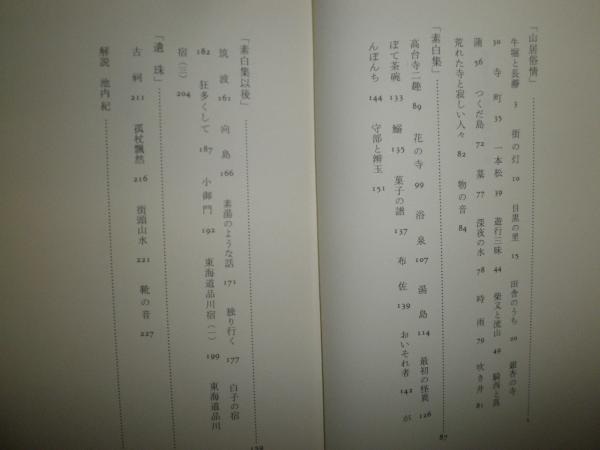 「山居俗情」
牛堀と長瀞 3 街の灯 10 目黒の里 15 田舎のうち 20 銀杏の寺
30 寺町 35 一本松 39 遊行三昧 44 柴又と流山 49 騎西と真
蒲 56 つくだ島 72 墓 77 深夜の水 78 時雨 79 吹き井 81
荒れた寺と寂しい人々 82 物の音 84
「素白集」
87
高台寺二趣 89 花の寺 99 浴泉 107 湯島 114 最初の怪異 126
ぼて茶碗 133 鰯 135 菓子の譜 137 布佐 139 おいそれ者 142
んぼんち 144 守部と辨玉 151
65
「素白集以後」
筑波 161 向島 166 素湯のような話 171 独り行く 177 白子の宿
182 狂多くして 187 小御門 192 東海道品川宿(一) 199 東海道品川
宿(三) 204
「遺珠」
古祠 211 孤杖飄然 216 街頭山水 221 靴の音 227
解説 池内紀